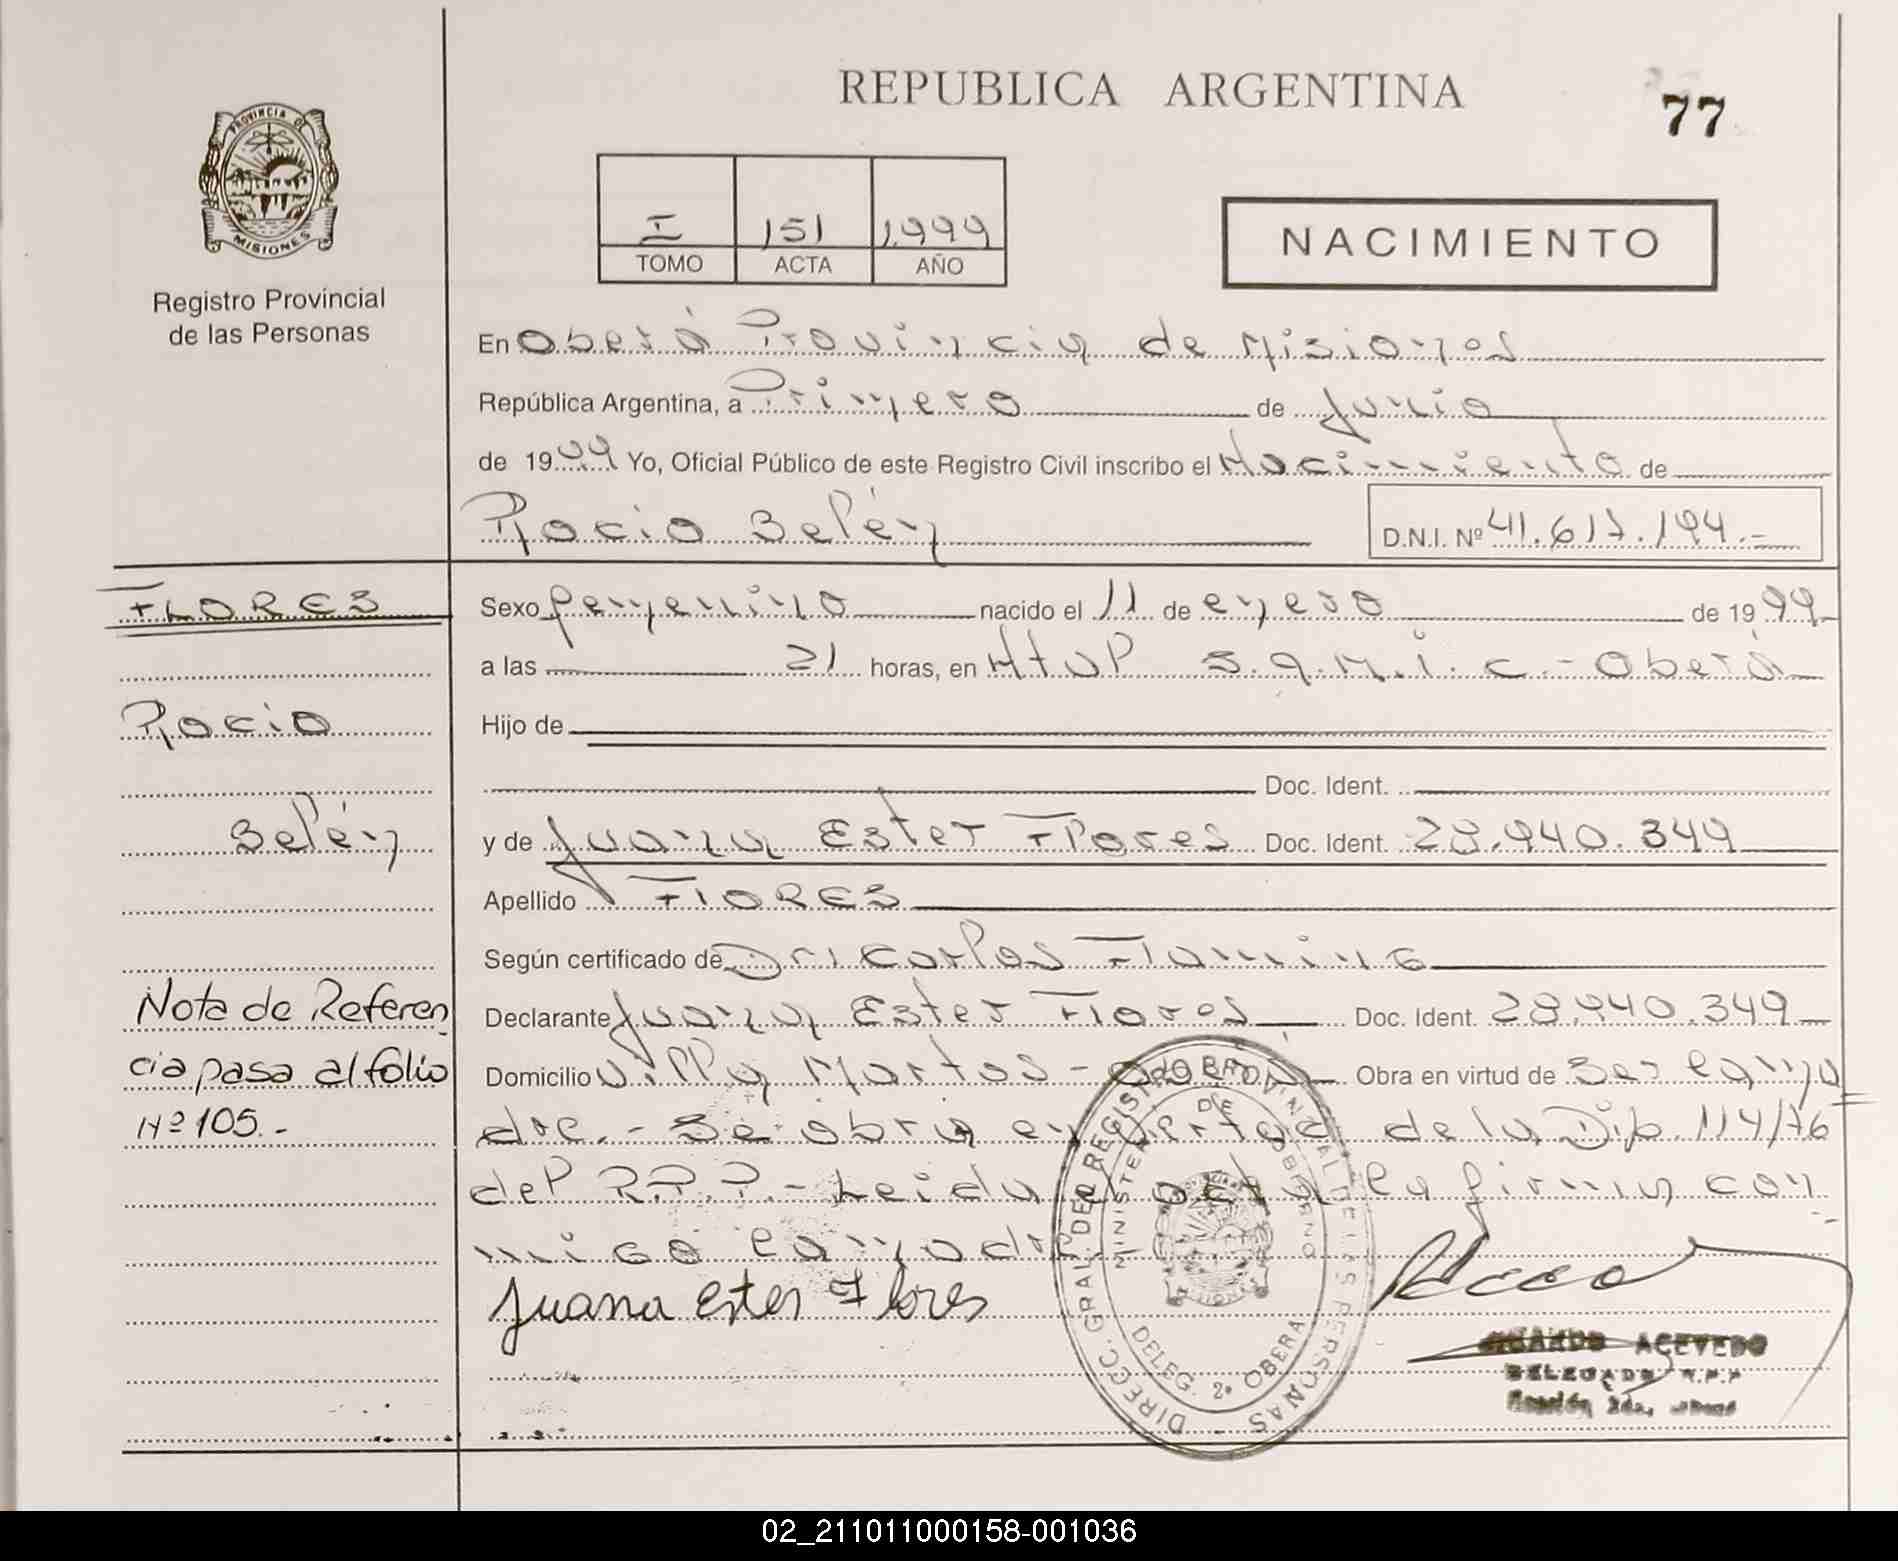 REPUBLICA ARGENTINA
77
PROVINCIA DE
MISIONES
Registro Provincial
de las Personas
I 151 1.999
TOMO ACTA AÑO
NACIMIENTO
En Oberá Provincia de Misiones
República Argentina, a Primero de Junio
de 1999 Yo, Oficial Público de este Registro Civil inscribo el Nacimiento de
Rocio Belén
D.N.I. Nº 41.617.194.-
FLORES
Sexo femenino nacido el 11 de enero de 1999
a las 21 horas, en Htal S.a.m.i.c.- Oberá
Rocio
Hijo de
Doc. Ident.
Belén
y de Juana Ester Flores Doc. Ident. 28.940.349
Apellido FLORES
Según certificado de Dr. Carlos
Nota de Referen
cia pasa al folio
Nº 105.-
Declarante Juana Ester Flores Doc. Ident. 28.940.349
Domicilio Villa Martos - Oberá Obra en virtud de Ser la ma
dre.- Se obra en virtud de la Dip. 114/76
del R.P.P.- Leida el acta la firma con
migo la madre
Juana Ester Flores
DIRECC. GRAL. DEL REGISTRO PROVINCIAL DE LAS PERSONAS
MINISTERIO DE GOBIERNO
DELEG. 2ª OBERA
ACEVEDO
DELEGADO R.P.P
02_211011000158-001036